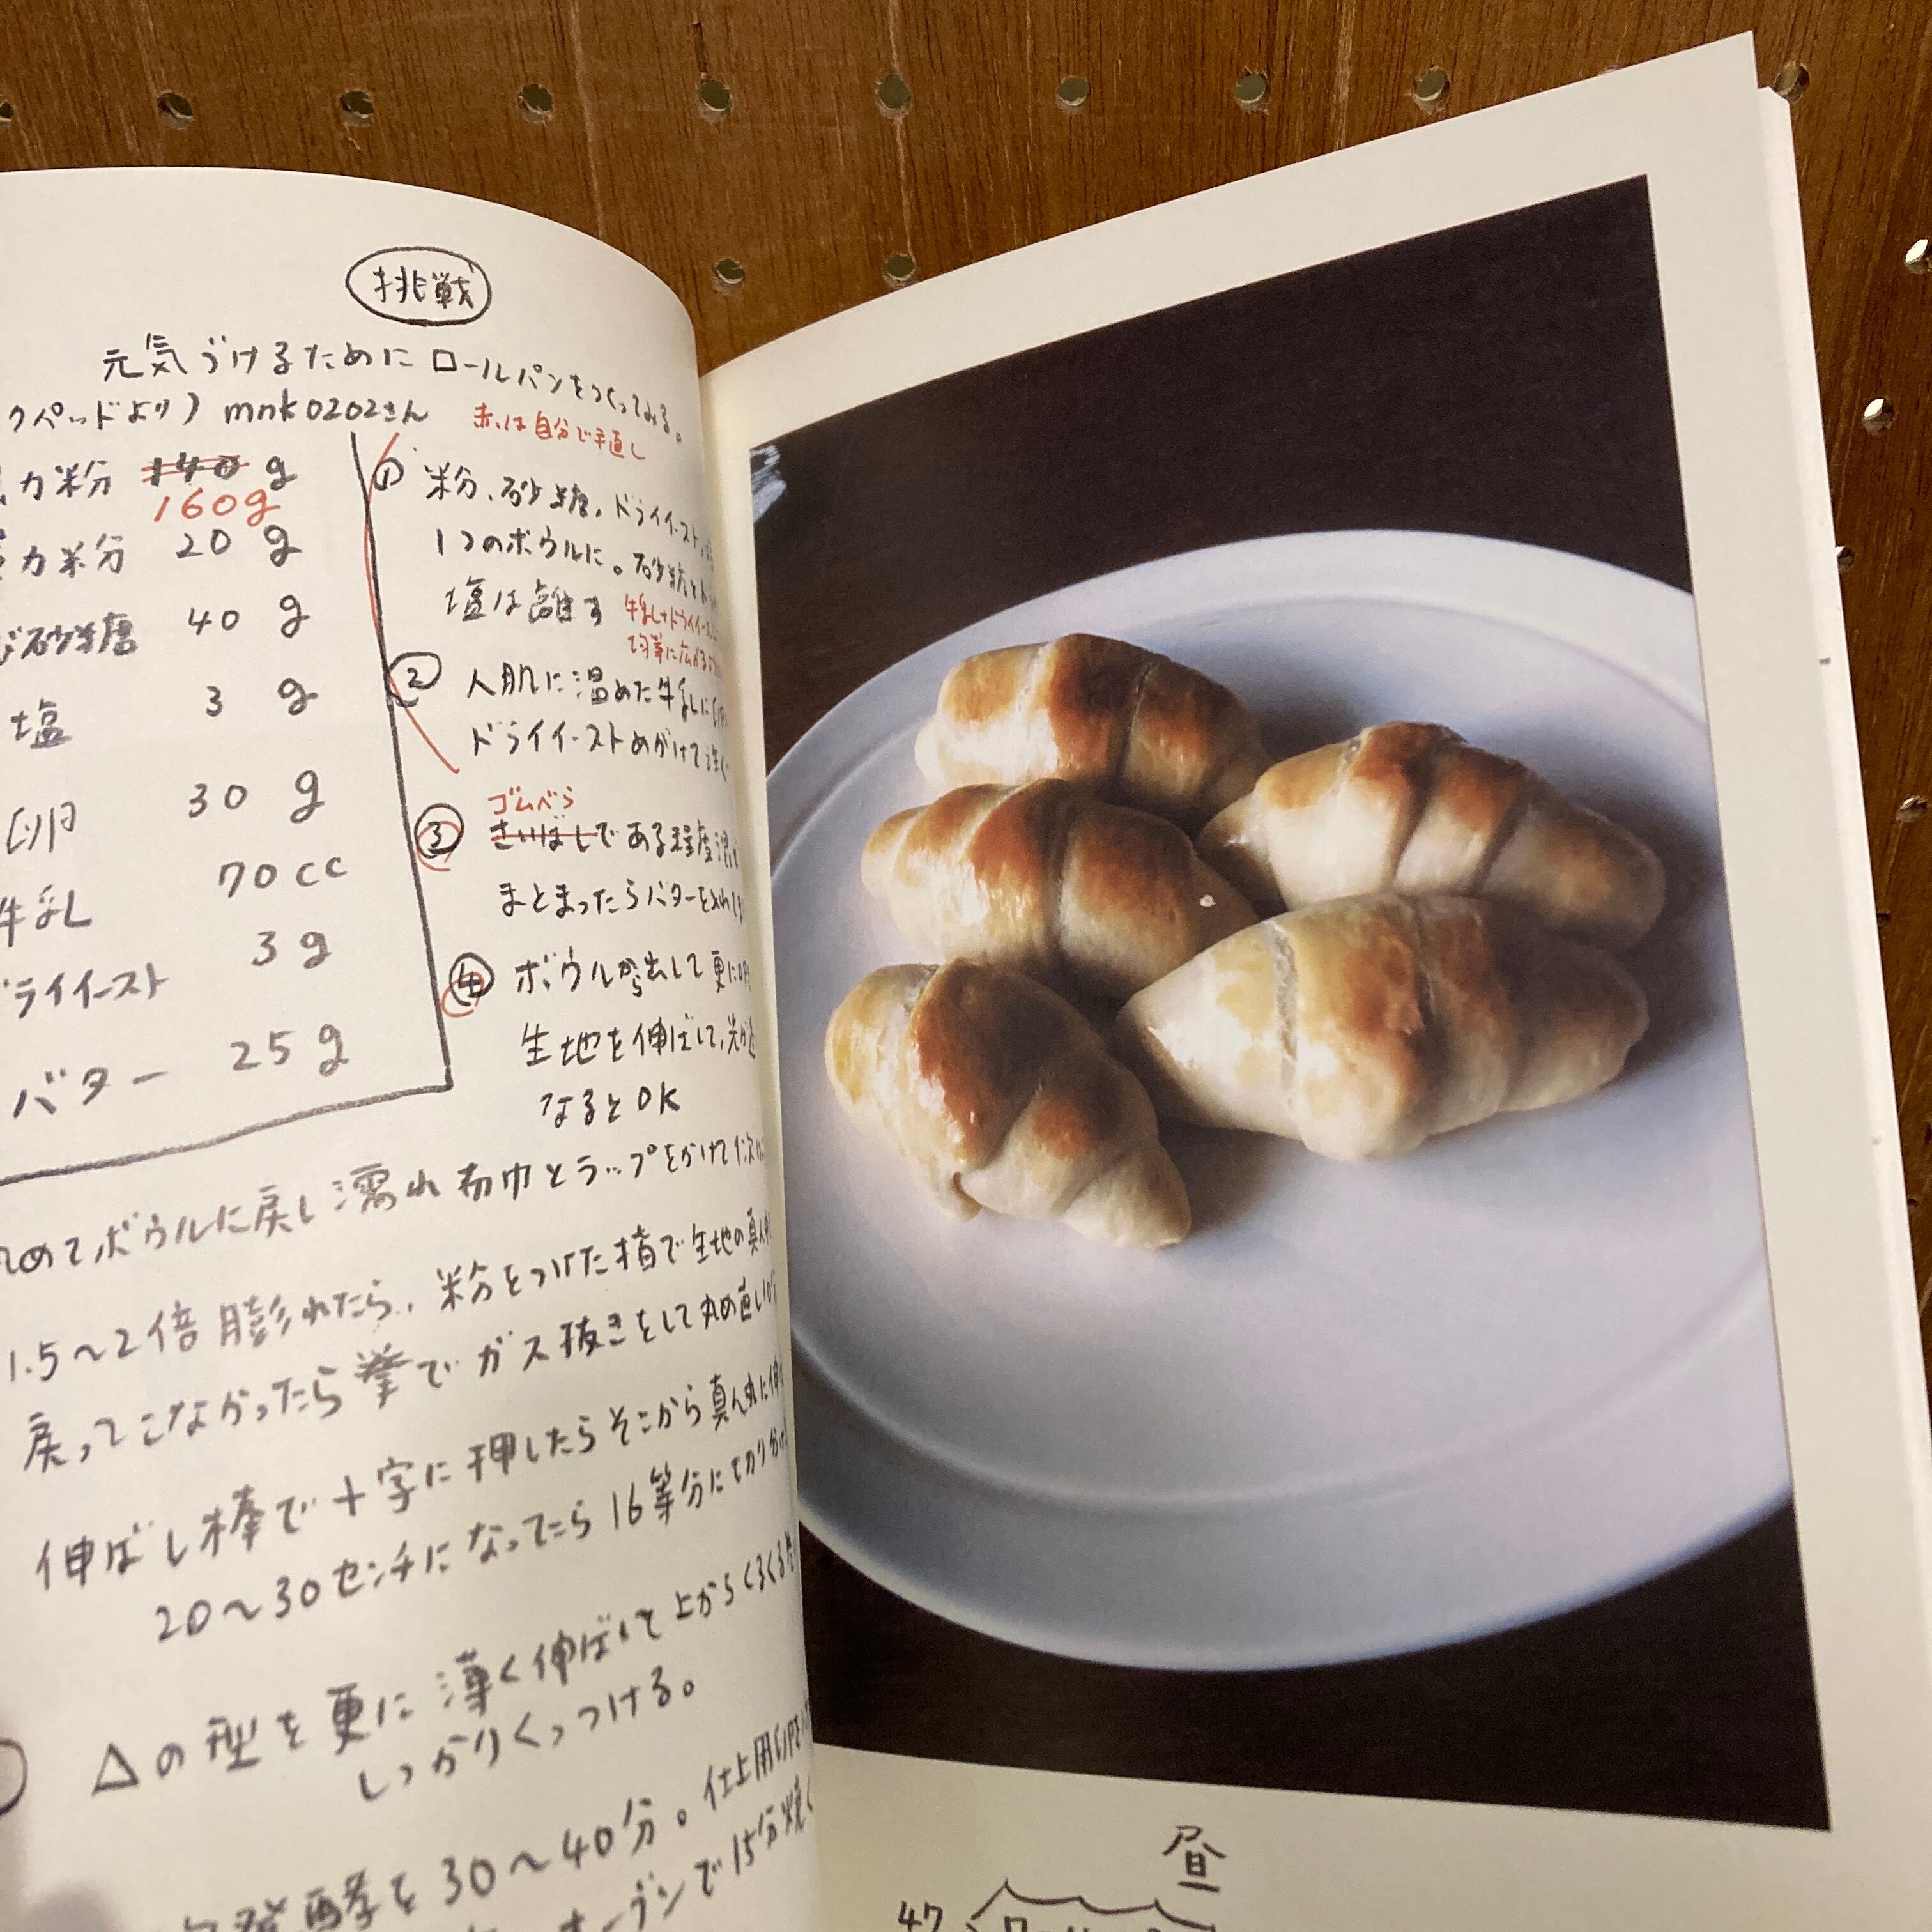 挑戦
元気づけるためにロールパンをつくってみる。
クパッドより) mnk0202さん
赤は自分で手直し
力粉 140 g
160g
力粉 20 g
砂糖 40 g
塩 3 g
卵 30 g
牛乳 70cc
ドライイースト 3g
バター 25g
① 粉、砂糖、ドライイースト、
1つのボウルに。砂糖と
塩は離す
牛乳+ドライイースト
均等に広がる
② 人肌に温めた牛乳に卵
ドライイーストめがけて注ぐ
③ ゴムべら
さいばしである程度混
まとまったらバターを入れ
④ ボウルから出して更に
生地を伸ばして、
なるとOK
めてボウルに戻し濡れ布巾とラップをかけて
1.5〜2倍膨れたら、粉をつけた指で生地の真ん中
戻ってこなかったら拳でガス抜きをして丸め直し10分
伸ばし棒で十字に押したらそこから真ん丸に伸
20〜30センチになってたら16等分に切り分け
△の型を更に薄く伸ばして上からくるくる巻
しっかりくっつける。
発酵を30〜40分。仕上用卵を
オーブンで15分焼く
昼
47